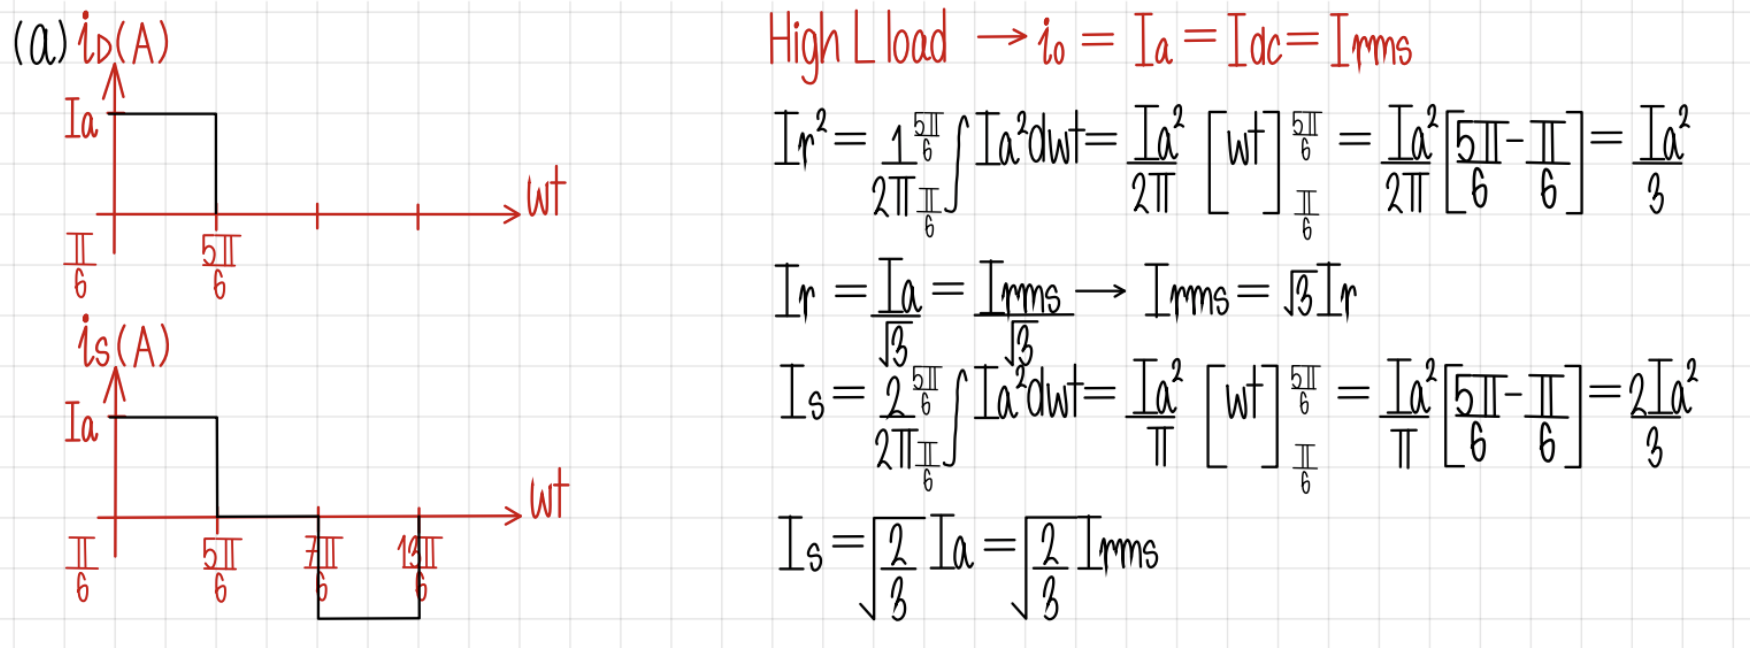 (a) iD(A)
Ia
wt
π/6 5π/6
is(A)
Ia
wt
π/6 5π/6 7π/6 13π/6
High L load → io = Ia = Idc = Irms
Ir² = 1/2π ∫_{π/6}^{5π/6} Ia² dwt = Ia²/2π [wt]_{π/6}^{5π/6} = Ia²/2π [5π/6 - π/6] = Ia²/3
Ir = Ia/√3 = Irms/√3 → Irms = √3 Ir
Is = 2/2π ∫_{π/6}^{5π/6} Ia² dwt = Ia²/π [wt]_{π/6}^{5π/6} = Ia²/π [5π/6 - π/6] = 2Ia²/3
Is = √(2/3) Ia = √(2/3) Irms